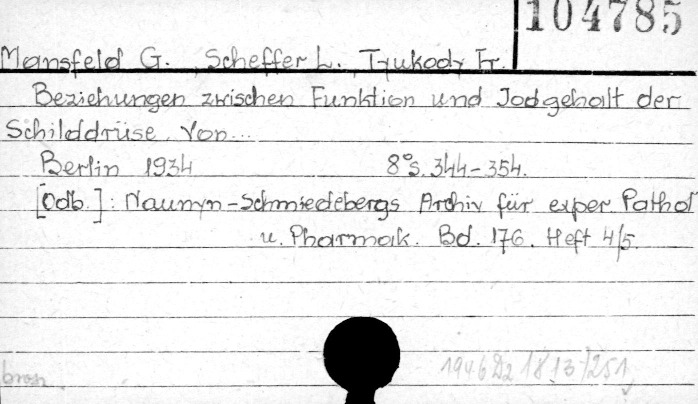 104785
Mansfeld G., Scheffer L., Tyukody Fr.
Beziehungen zwischen Funktion und Jodgehalt der
Schilddrüse. Von...
Berlin 1934 8° S. 344-354.
[Ödb.]: Naunyn-Schmiedebergs Archiv für exper. Pathol
u. Pharmak. Bd. 176. Heft 4/5.
1946 18.13/251